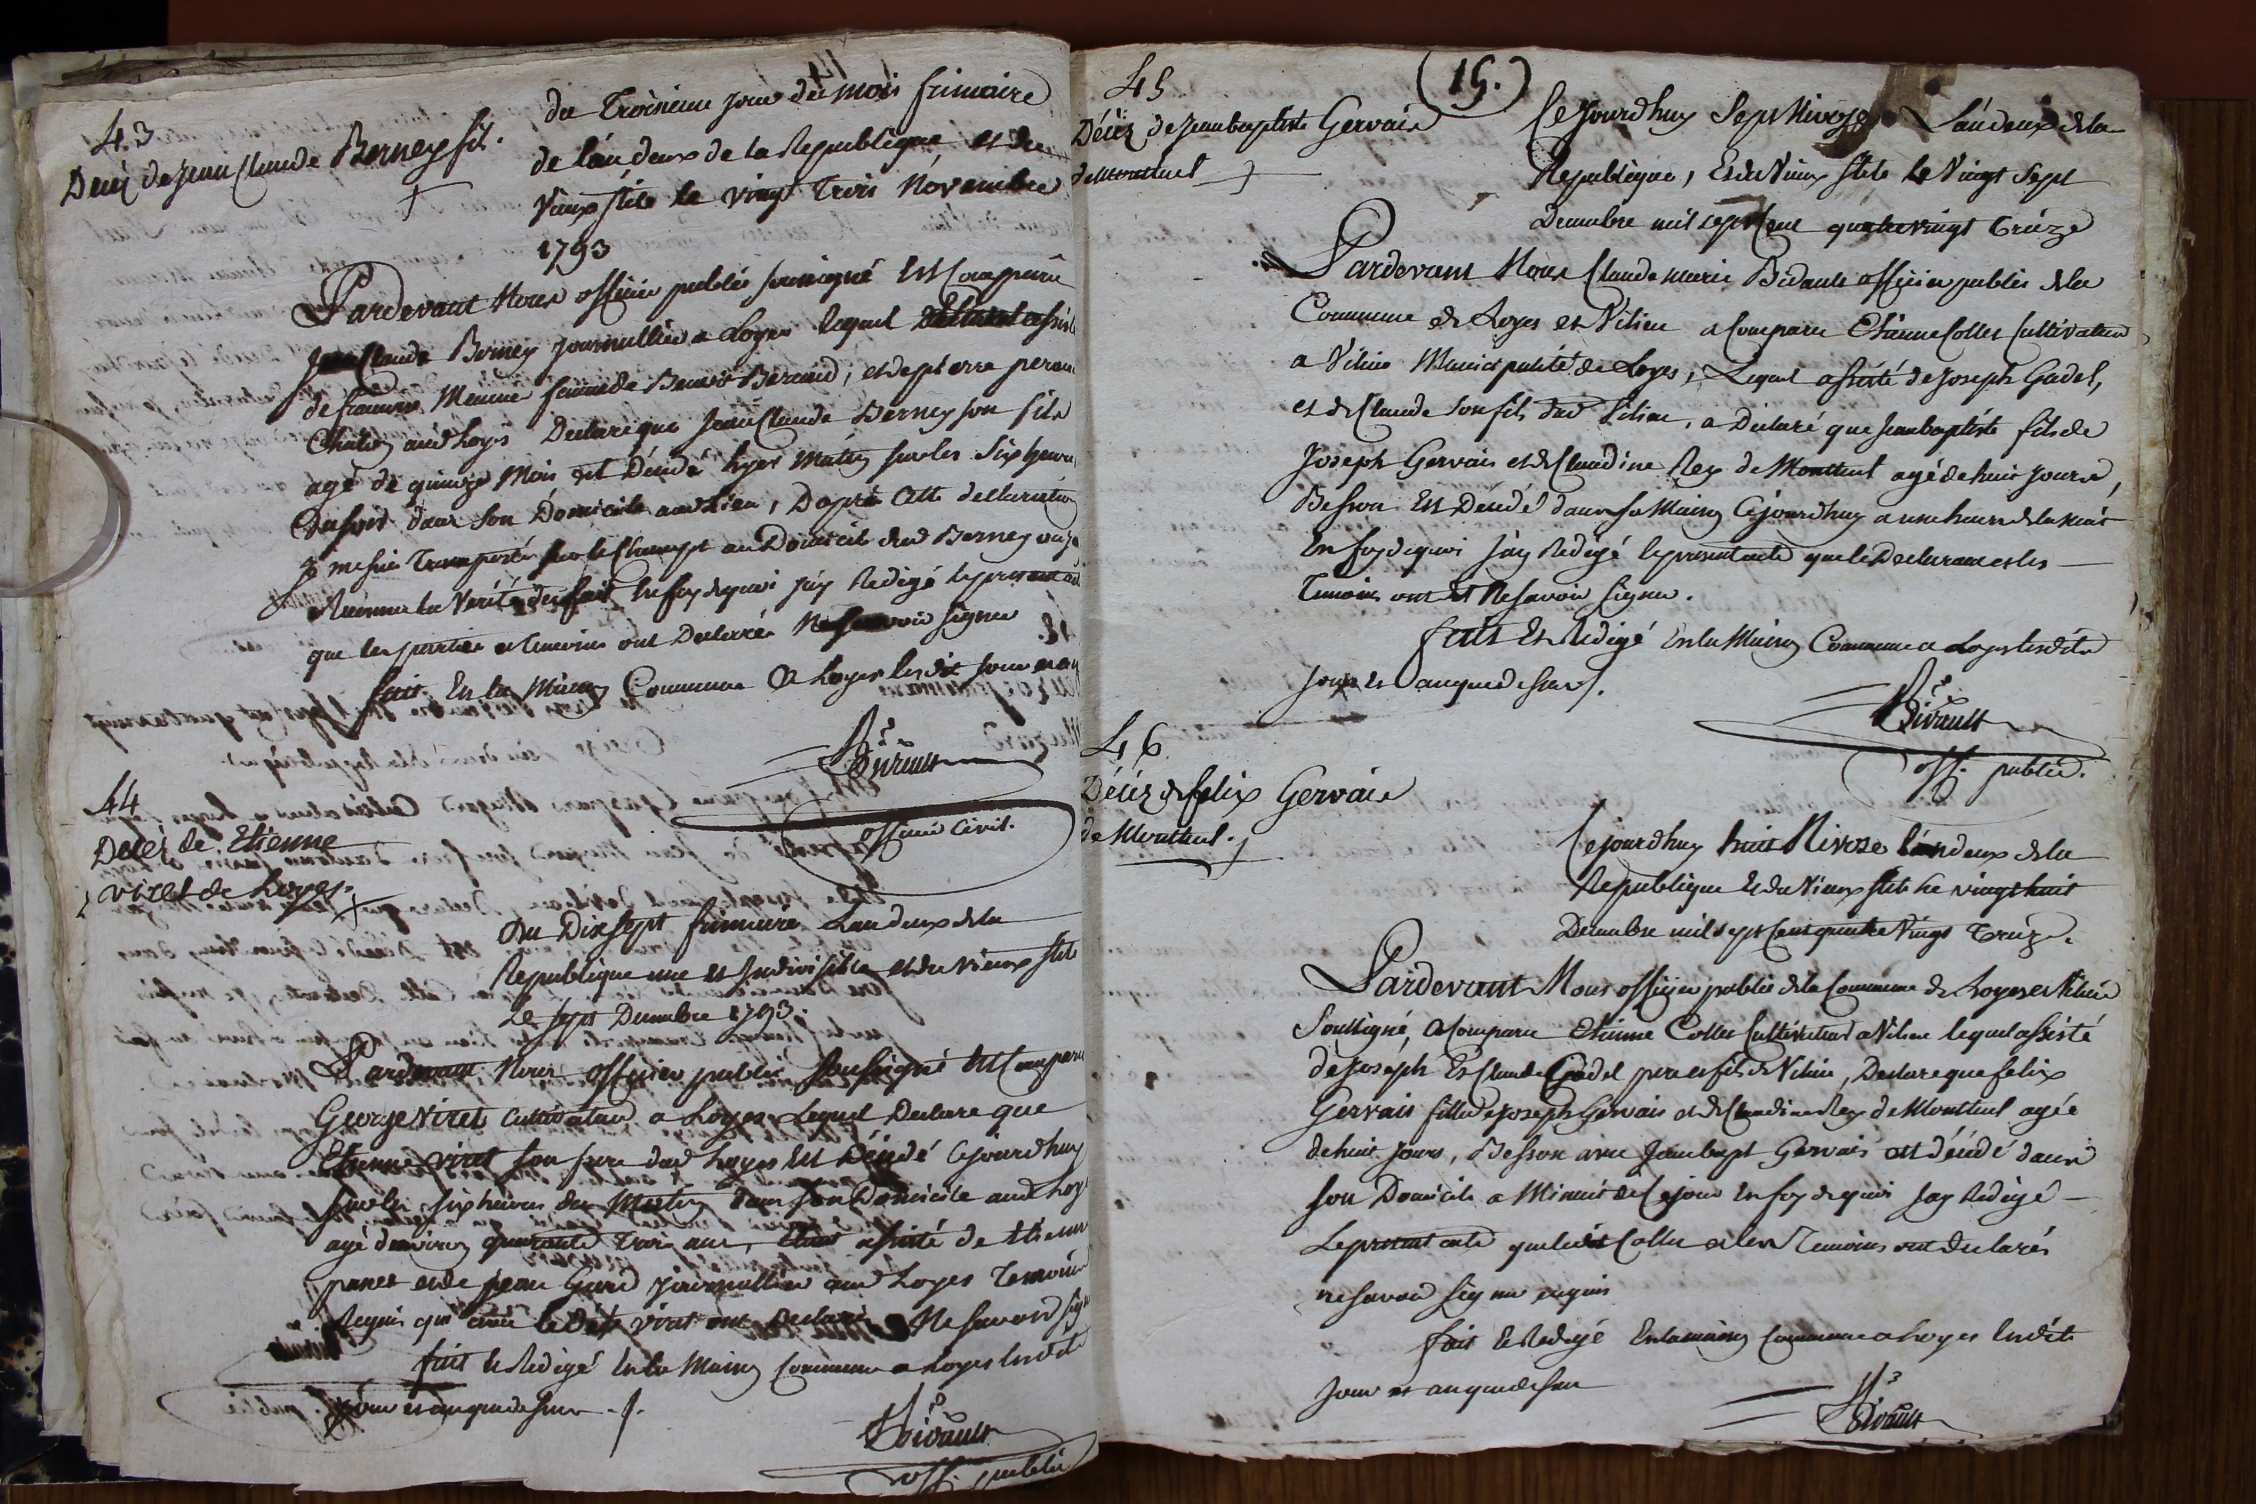 43
Décés de Jean Claude Berney fils.
du Troisieme jour du mois frimaire
de l'an deux de la Republique, et du
Vieux stile le vingt Trois Novembre
1793
Pardevant Nous officier public soussigné Est Comparu
Jean Claude Berney journallier a Loyes lequel assisté
de Memme femme de Benoit Beraud, et de pierre
aud Loyes Declare que Jean Claude Berney son fils
agé de quinze Mois est Décédé hyer Matin sur les Six heures
dans Son Domicile aud Lieu, D'après Cette declaration
je me suis Transporté sur le Champt au Domicile dud Berney
la Verité du fait En foy de quoi j'ay Redigé le present
que les parties et temoins ont Declarés Ne Savoir signer
fait En la Maison Commune a Loyes lesdit jour et an
Bivault
officier Civil.
44
Décés de Etienne
viret de Loyes.
Du Dix sept frimaire L'an deux de la
Republique une et Indivisible et du vieux stile
Le sept Decembre 1793.
Pardevant Nous officier public Soussigné Est Comparu
George Viret Cultivateur a Loyes Lequel Declare que
Etienne viret son frere dud Loyes Est Décédé Cejourdhuy
sur les six heures du Matin dans son Domicile aud Loyes
agé d'environ quarante Trois ans, assisté de Etienne
et de jean journallier aud Loyes Temoins
Requis qui avec le Dit viret ont Declaré Ne Savoir signer
fait Et Redigé En la Maison Commune a Loyes lesdit
jour et an que dessus.
Bivault
off. public
(15.)
45
Décéz de Jean baptiste Gervais
de Montluel
Cejourdhuy Sept Nivoze L'an deux de la
Republique, Et du Vieux Stile le Vingt Sept
Decembre mil sept Cent quatre vingt treize
Pardevant Nous Claude Marie Bivault officier public de la
Commune de Loyes et Vilieu a Comparu Etienne Collet Cultivateur
a Vilieu Municipalité de Loyes, Lequel assisté de Joseph Gadel,
et de Claude son fils dud Vilieu, a Déclaré que Jean baptiste fils de
Joseph Gervais et de Claudine Rey de Montluel agé de huit jours,
Besson Est Décédé dans sa Maison Cejourdhuy a une heure de la nuit
En foy de quoi j'ay Redigé le present acte que le Declarant et les
Temoins ont dit Ne Savoir Signer.
fait Et Redigé En la Maison Commune a Loyes lesdits
jour et an que dessus.
Bivault
off. public.
46
Décéz de felix Gervais
de Montluel.
Cejourdhuy huit Nivoze l'an deux de la
Republique Et du Vieux Stile le vingt huit
Decembre mil sept Cent quatre Vingt Treize.
Pardevant Nous officier public de la Commune de Loyes et Vilieu
Soussigné, a Comparu Etienne Collet Cultivateur a Vilieu lequel assisté
de Joseph Et Claude Gadel pere et fils de Vilieu, Declare que felix
Gervais fille de Joseph Gervais et de Claudine Rey de Montluel agée
de huit jours, Besson avec Jean bapt Gervais est décédé dans
son Domicile a Minuit de Ce jour En foy de quoi jay Redigé
Le present acte que ledit Collet et les Temoins ont declarés
ne Savoir Signer enquis
fait Et Redigé En la maison Commune a Loyes lesdits
jour et an que dessus
Bivault